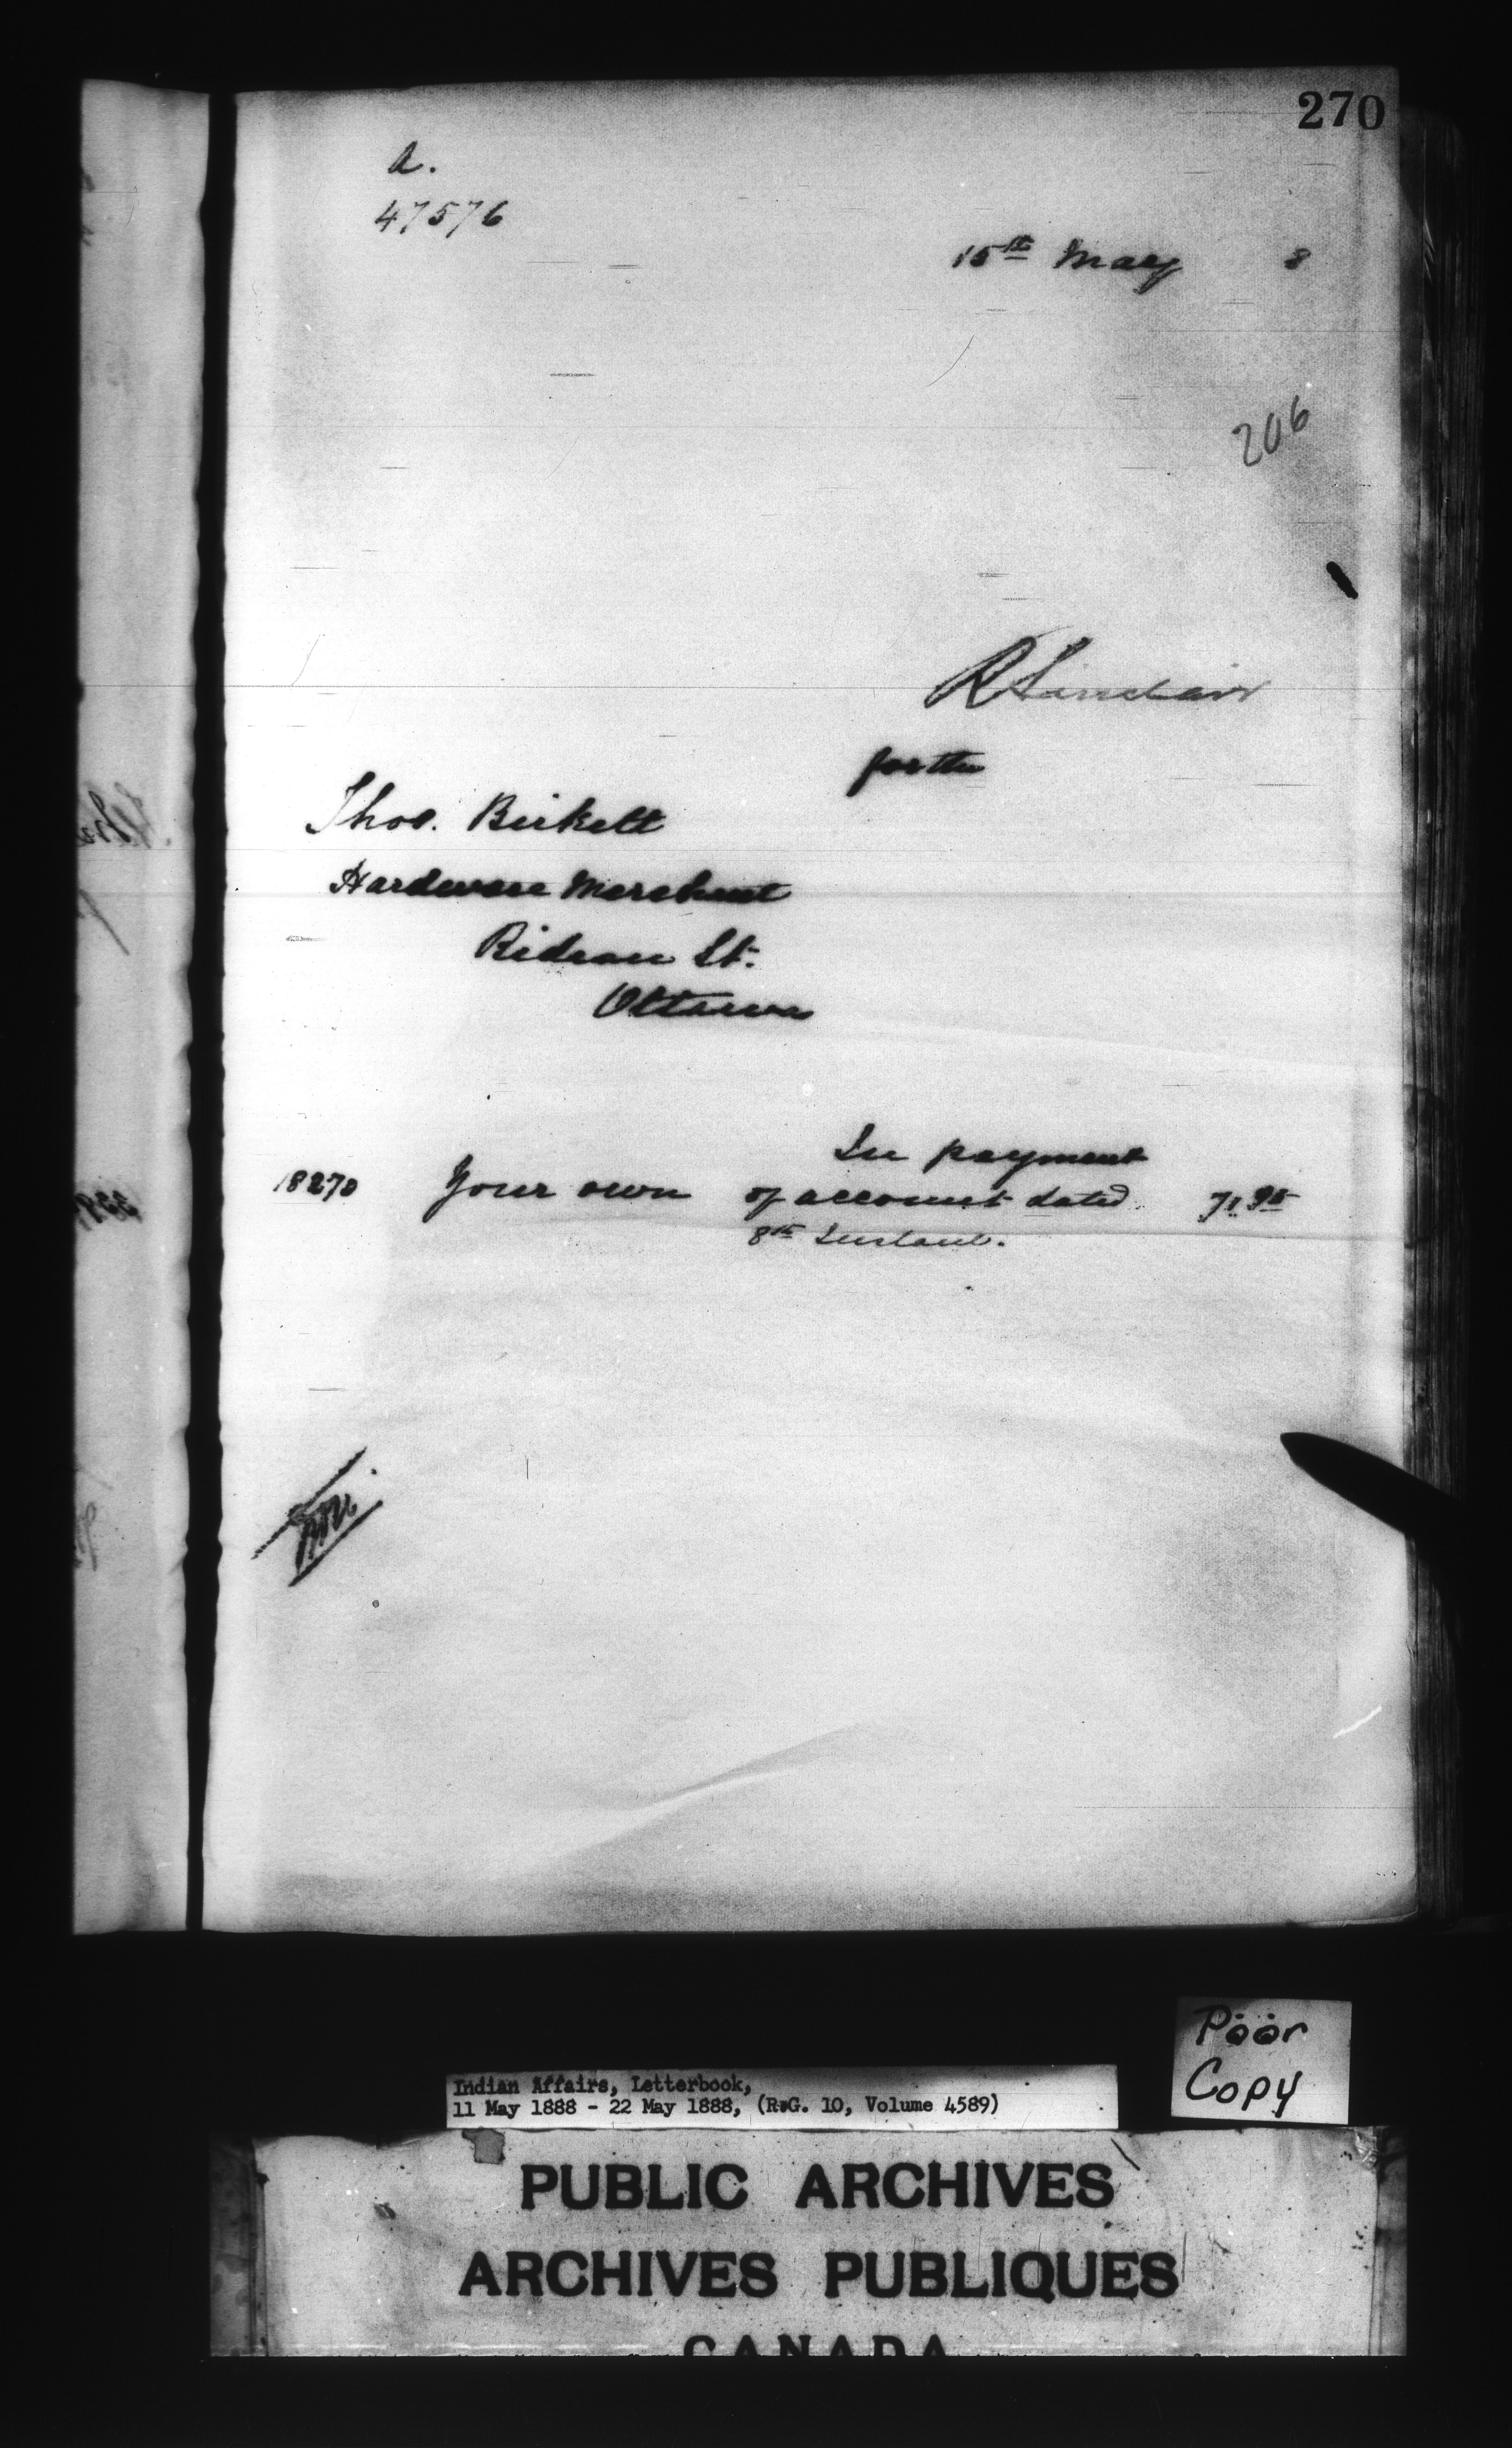 270
A.
47576
15th May 8
206
R Sinclair
for the
Thos. Birkett
Hardware Merchant
Rideau St.
Ottawa
In payment
18270 Your own of account dated 71.95
8th Instant.
Poor
Copy
Indian Affairs, Letterbook,
11 May 1888 - 22 May 1888, (R.G. 10, Volume 4589)
PUBLIC ARCHIVES
ARCHIVES PUBLIQUES
CANADA